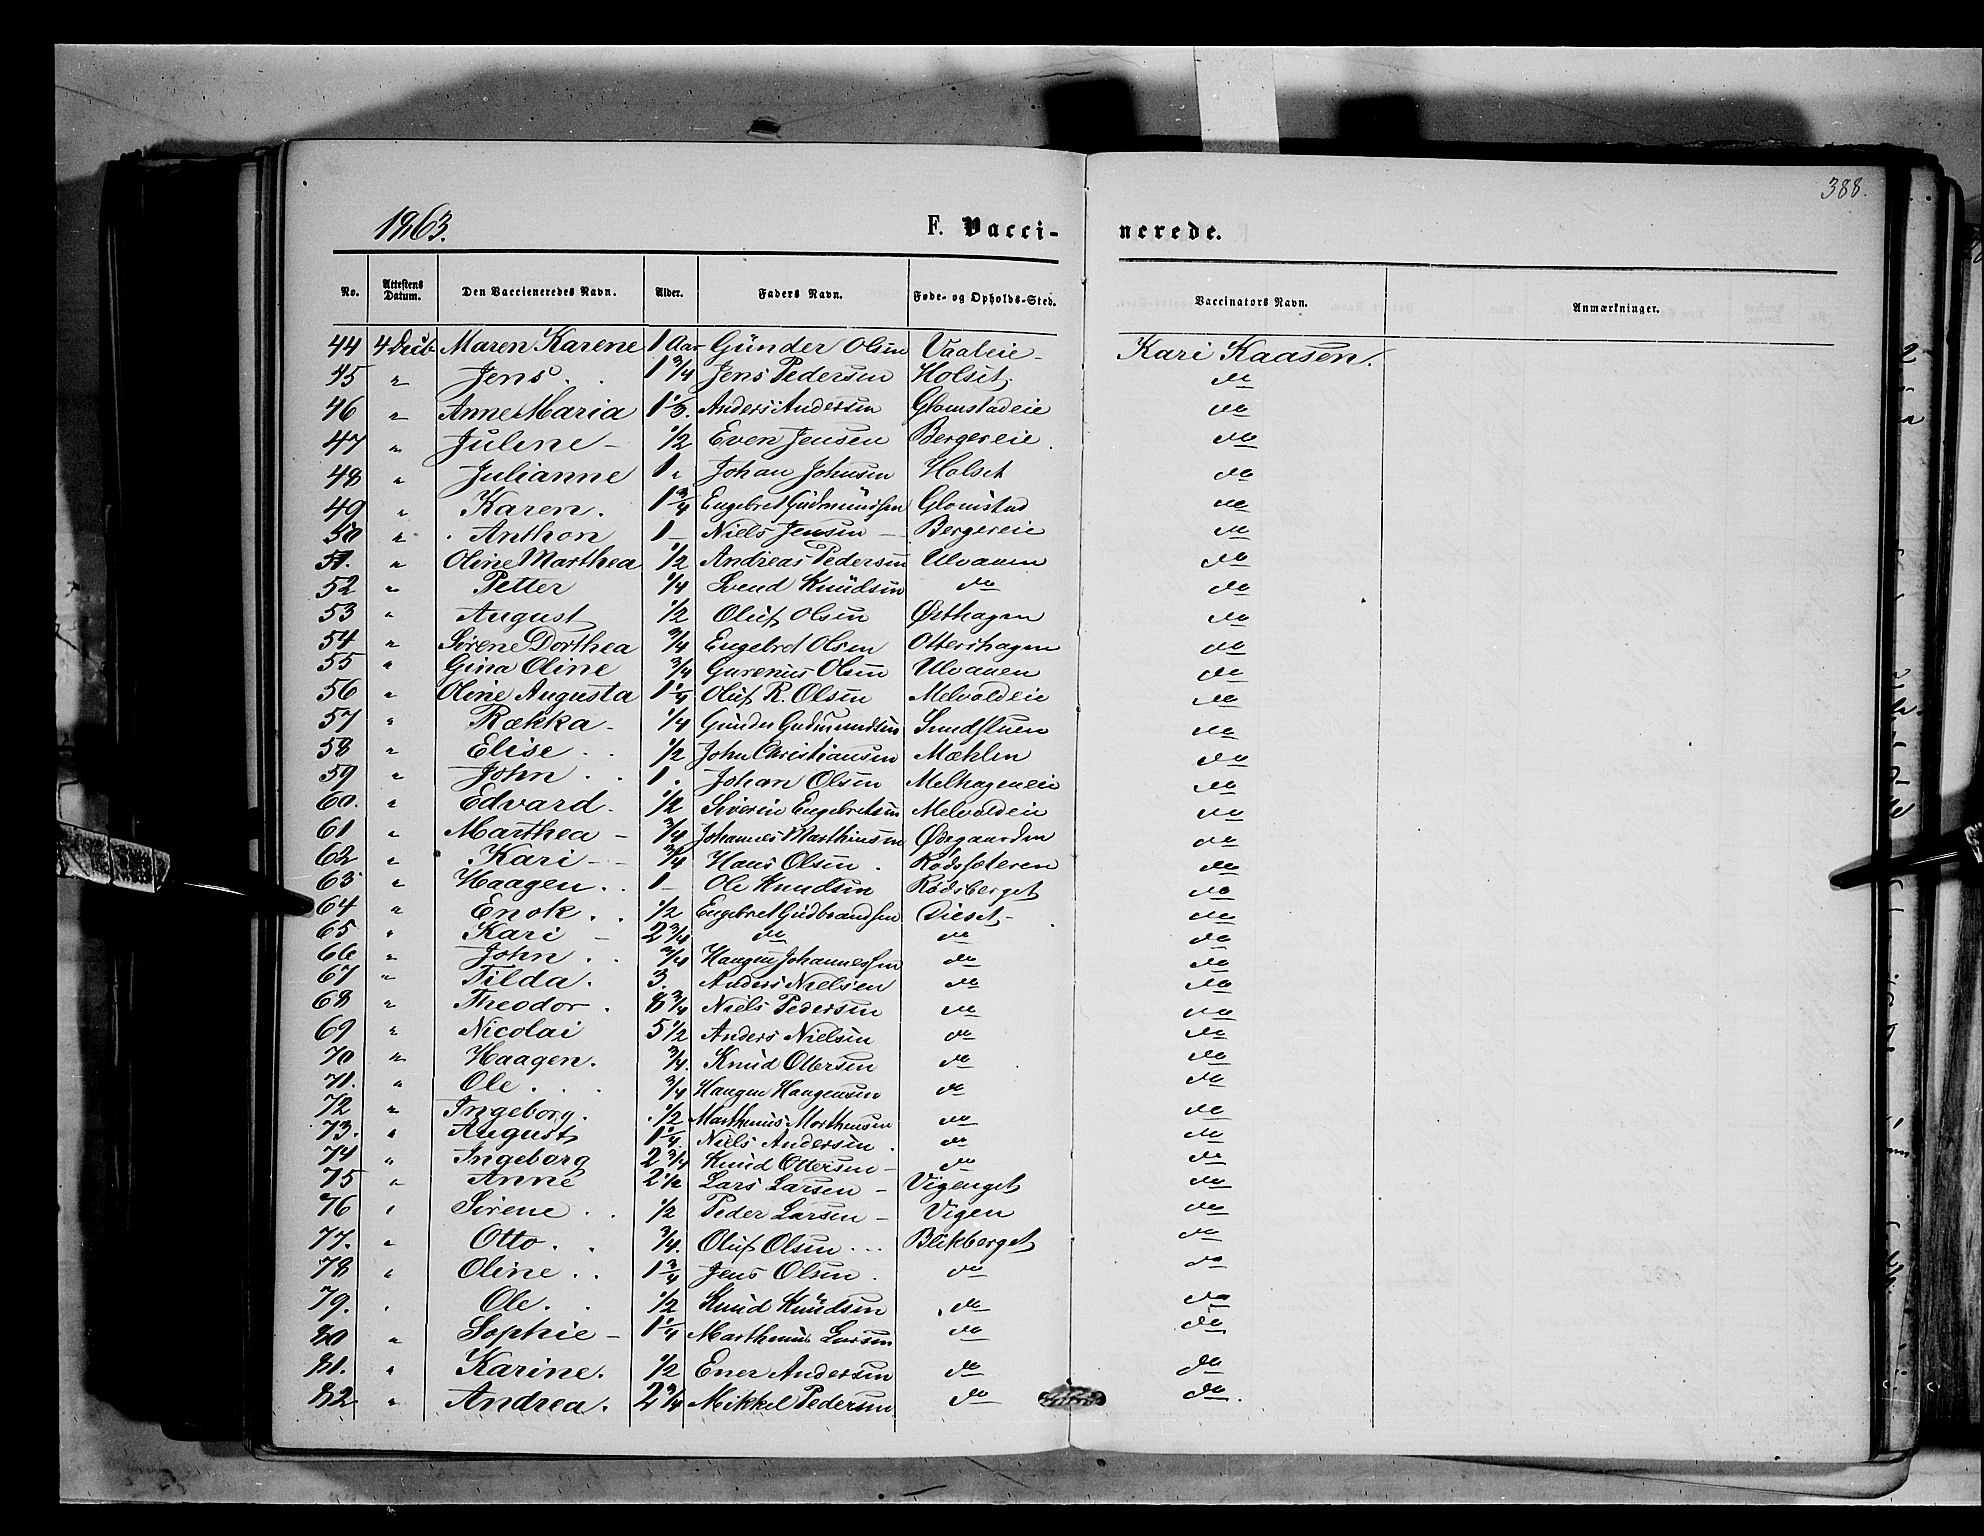 388.
1863.
F. Vacci- nerede.
No. Attestens Datum. Den Vaccieneredes Navn. Alder. Faders Navn. Føde- og Opholds-Sted. Vaccinators Navn. Anmærkninger.
44 4 Maren Karene 1 Aar Günder Olsen Vaaleie Kari Kaasen.
45 " Jens 1 3/4 Jens Pedersen Holset do
46 " Anne Maria 1 1/3. Anders Andersen Glomstadeie do
47 " Juline 1/2 Even Jensen Bergereie do
48 " Julianne 1 " Johan Johnsen Holset do
49 " Karen. 1 3/4 Engebret Gudmundsen Glomstad do
50 " Anthon 1 Niels Jensen Bergereie do
51. " Oline Marthea 1/2 Andreas Pedersen Ulvaaen do
52 " Petter 1/4 Svend Knudsen do do
53 " August 1/2 Oluf Olsen Østhagen do
54 " Sirene Dorthea 3/4 Engebret Olsen Ottershagen do
55 " Gina Oline 3/4 Gurenius Olsen Ulvaaen do
56 " Oline Augusta 1 1/4 Oluf R. Olsen Melvoldeie do
57 " Rækka 1/4 Gunder Gudmundsen Sundstuen do
58 " Elise 1/2 John Christiansen Mæhlen do
59 " John 1 Johan Olsen Melhageneie do
60. " Edvard 1/2 Siverin Engebretsen Melvoldeie do
61 " Marthea 3/4 Johannes Marthinsen Ødegaarden do
62 " Kari 3/4 Hans Olsen Rødssæteren do
63 " Haagen 1 Ole Knudsen Rødsberget do
64 " Enok 1/2 Engebret Gudbrandsen Dieset do
65 " Kari 2 3/4 do do do
66 " John 3/4 Haagen Johannessen do do
67 " Tilda. 3. Anders Nielsen do do
68 " Theodor 8 3/4 Niels Pedersen do do
69 " Nicolai 5 1/2 Anders Nielsen do do
70 " Haagen. 3/4. Knud Ottersen do do
71. " Ole 3/4 Haagen Haagensen do do
72 " Ingeborg. 1/2 Marthinus Morthensen do do
73. " August 1 1/4 Niels Andersen do do
74 " Ingeborg 2 3/4 Knud Ottersen do do
75 " Anne 2 1/2 Lars Larsen Vigenget do
76 " Sirene 1/2 Peder Larsen Vigen do
77. " Otto 3/4. Oluf Olsen Blikberget do
78 " Oline 1 3/4 Jens Olsen do do
79. " Ole. 1/2 Knud Knudsen do do
80 " Sophie 1 1/4 Marthinus Larsen do do
81. " Karine. 1/2 Ener Andersen do do
82 " Andrea. 2 3/4 Mikkel Pedersen do do